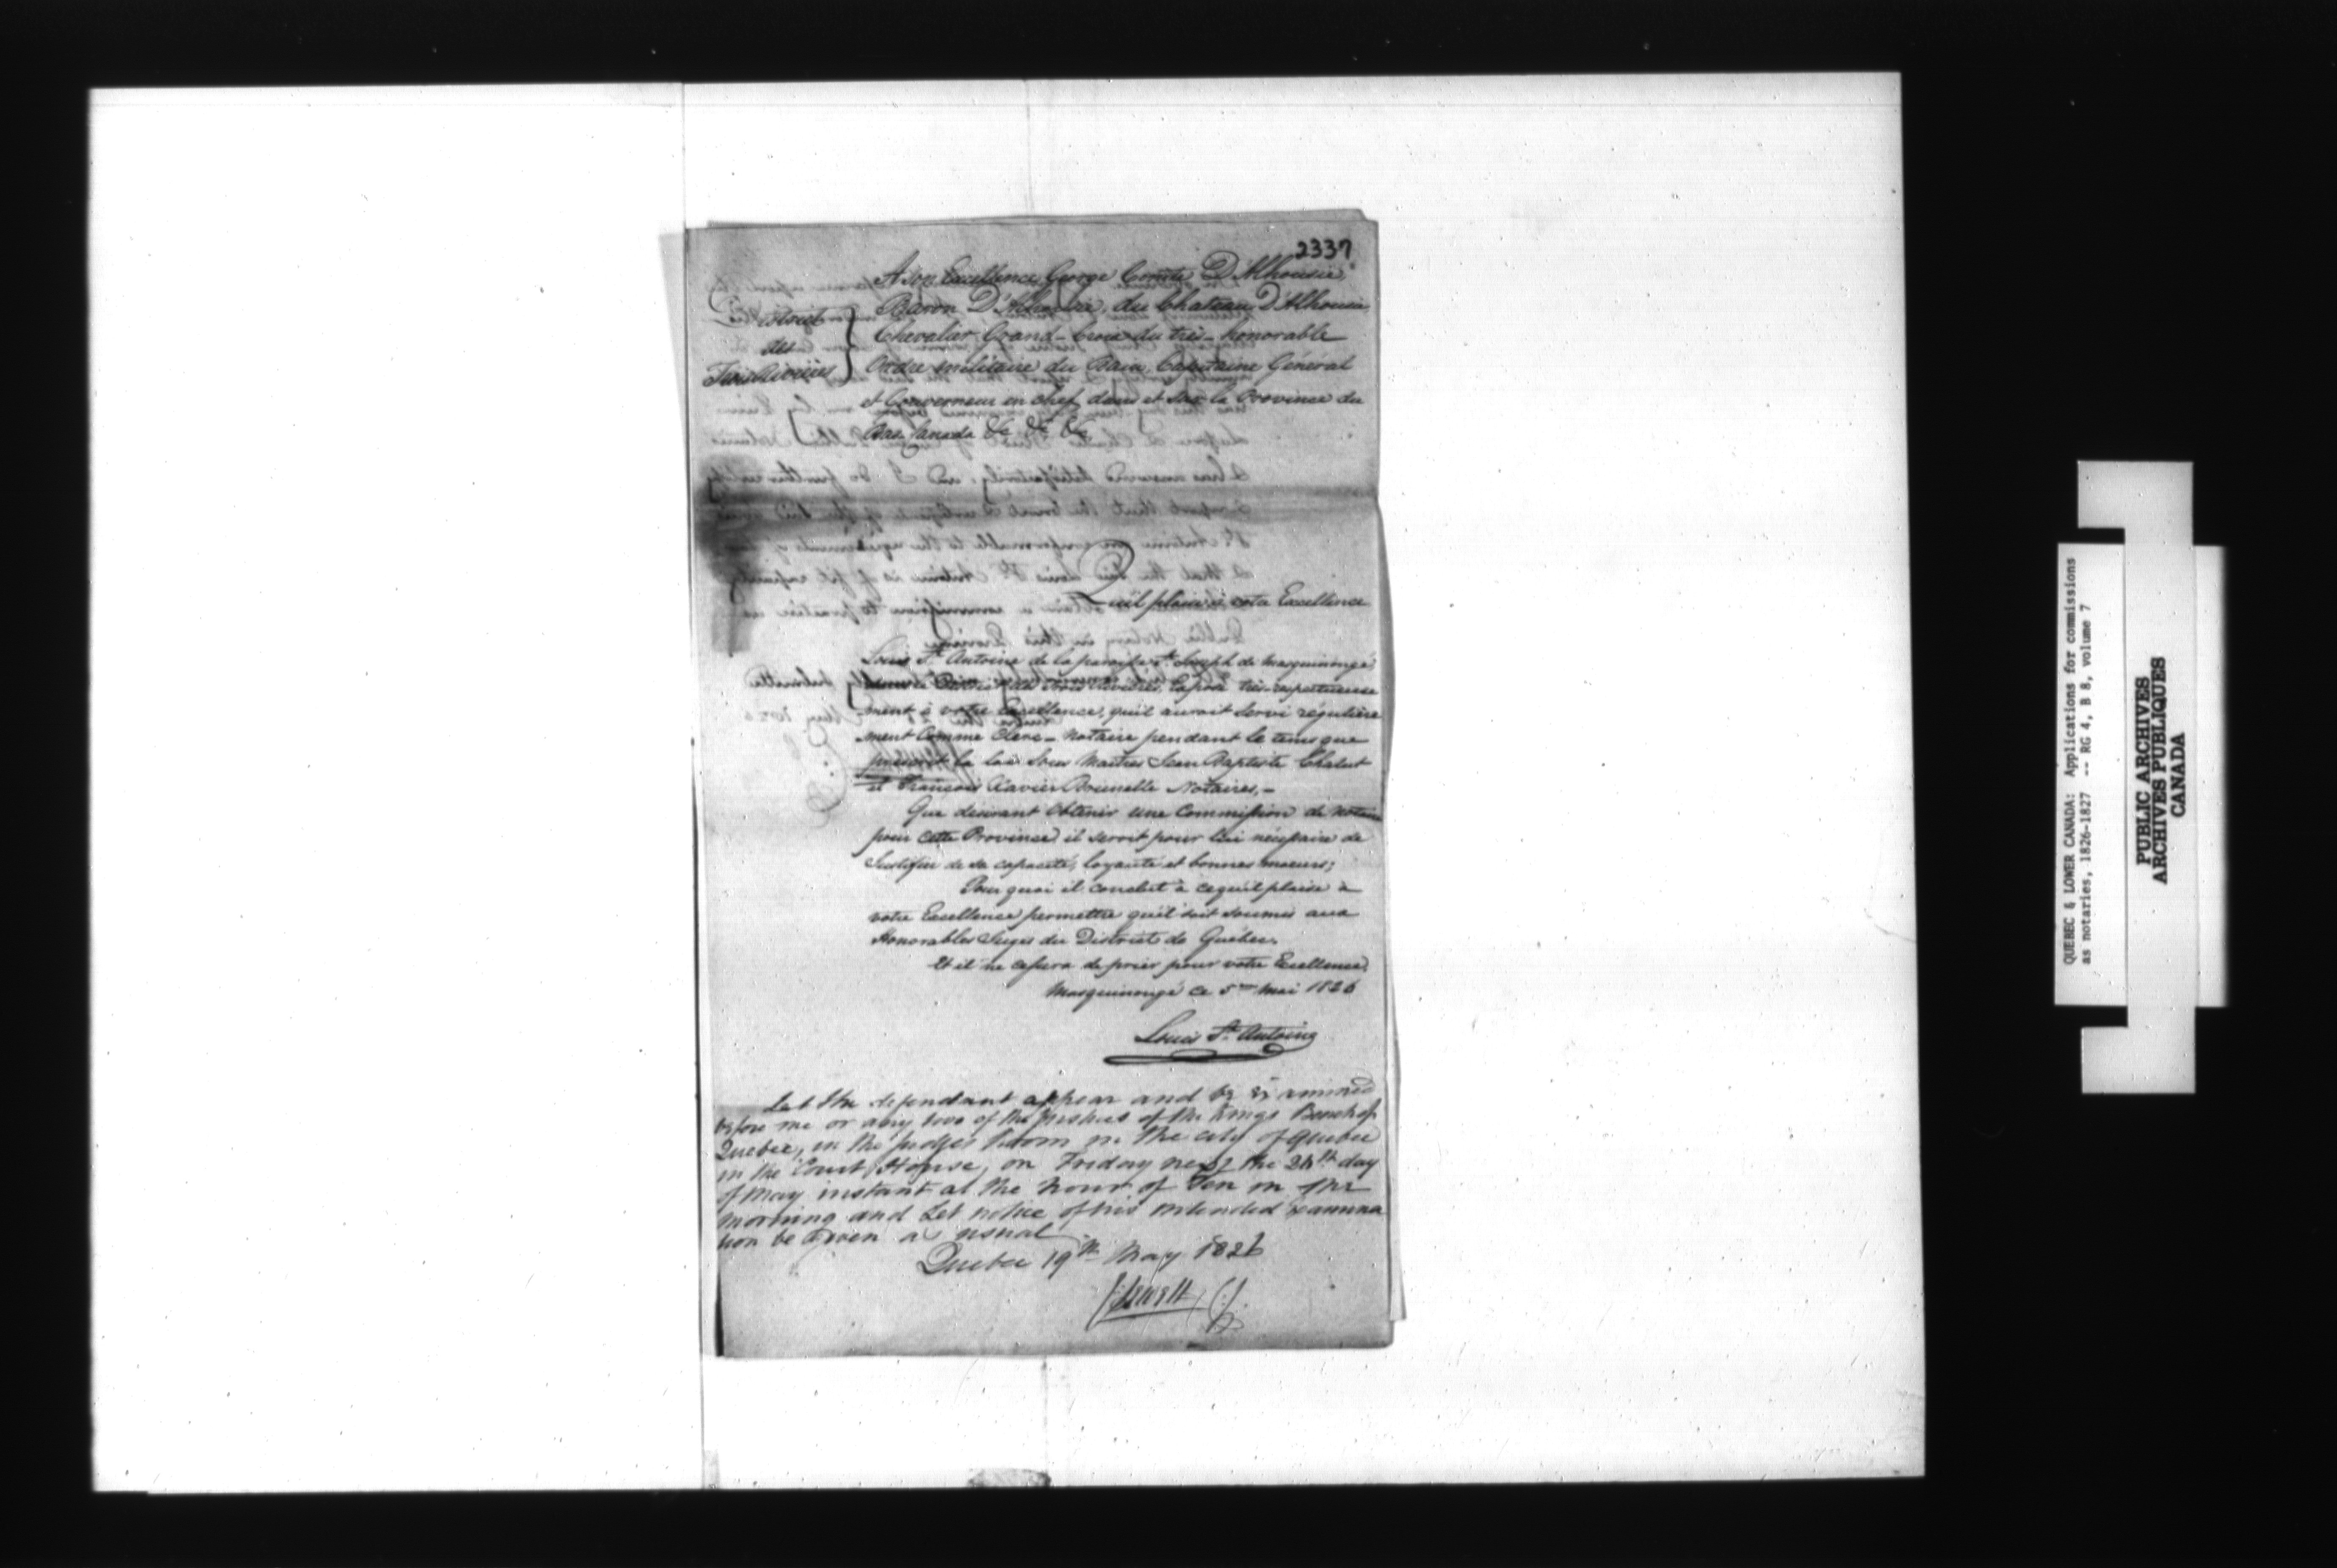 2337
A Son Excellence George Comte D'Alhousie,
Baron D'Alhousie, du Chateau D'Alhousie,
Chevalier Grand-Croix du très-honorable
Ordre militaire du Bain, Capitaine Général
et Gouverneur en chef dans et sur la Province du
Bas Canada &c &c &c
District
des
Trois Rivières
Qu'il plaise à votre Excellence
Louis St. Antoine de la paroisse St. Joseph de Masquinongé
Trois Rivières, Expose très-respectueuse
ment à votre Excellence, qu'il auroit servi régulière
ment comme Clerc-Notaire pendant le tems que
prescrit la loi sous Maitres Jean Baptiste Chalut
et François Xavier Brunelle Notaires,-
Que desirant obtenir une Commission de Notaire
pour cette Province il seroit pour lui nécessaire de
Justifier de sa capacité, loyauté et bonnes moeurs;
Pourquoi il conclut à ce qu'il plaise à
votre Excellence permettre qu'il soit soumis aux
Honorables Juges du District de Québec.
Et il ne cessera de prier pour votre Excellence.
Masquinongé ce 5me mai 1826
Louis St. Antoine
Let the defendant appear and be examined
before me or any two of the Justices of the Kings Bench of
Quebec, in the Judges Room in the City of Quebec
in the Court House, on Friday next the 26th day
of May instant at the hour of Ten in the
morning and Let notice of his intended Examina
tion be given as usual
Quebec 19th May 1826
J Sewell CJ.
QUEBEC & LOWER CANADA: Applications for commissions
as notaries, 1826-1827 -- RG 4, B 8, volume 7
PUBLIC ARCHIVES
ARCHIVES PUBLIQUES
CANADA